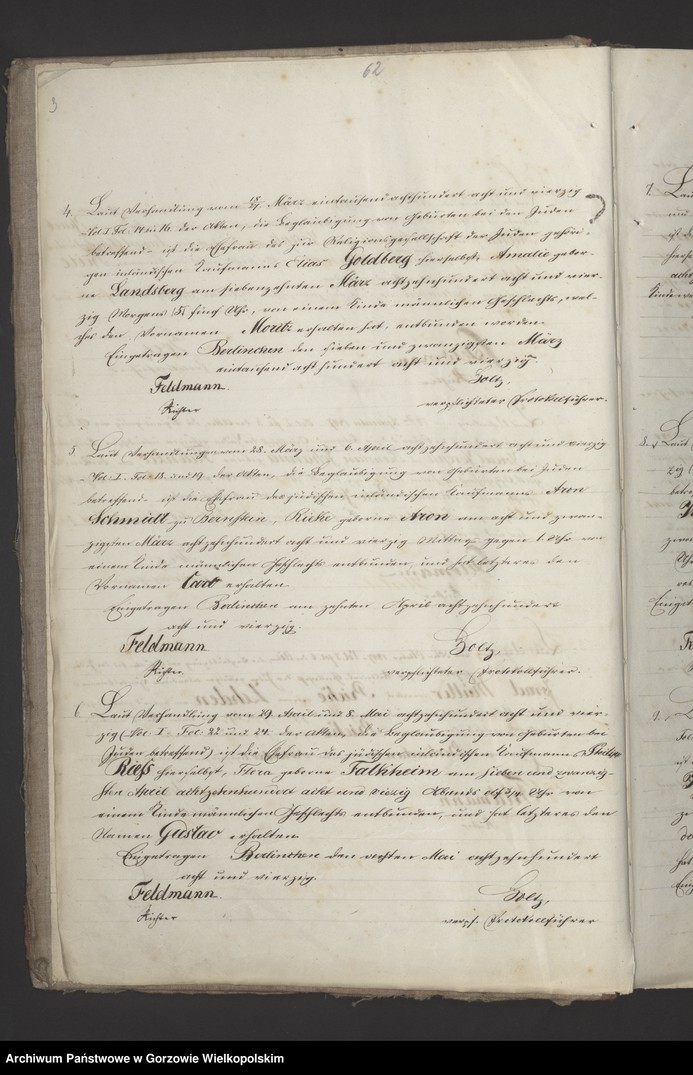 62
3
4. Laut Verhandlung vom März eintausend achthundert acht und vierzig
Vol. I. Fol. 14 u. 16 der Akten, die Beglaubigung von Geburten bei den Juden
betreffend – ist die Ehefrau des zur Religionsgesellschaft der Juden gehöri-
gen inländischen Kaufmanns Elias Goldberg hierselbst, Amalie gebor-
ne Landsberg am siebenzehnten März achtzehnhundert acht und vier-
zig Morgens (5) fünf Uhr, von einem Kinde männlichen Geschlechts, wel-
ches den Vornamen Moritz erhalten hat, entbunden worden.
Eingetragen Berlinchen den sieben und zwanzigsten März
eintausend acht hundert acht und vierzig.
Feldmann Goltz,
Richter verpflichteter Protokollführer.
5. Laut Verhandlungen vom 28. März und 6. April achtzehnhundert acht und vierzig
Vol. I. Fol. 18. und 19 der Akten, die Beglaubigung von Geburten bei Juden
betreffend – ist die Ehefrau des jüdischen inländischen Kaufmanns Aron
Schmidt zu Bernstein, Rieke geborne Aron am acht und zwan-
zigsten März achtzehnhundert acht und vierzig Mittags gegen 1 Uhr von
einem Kinde männlichen Geschlechts entbunden, und hat letzteres den
Vornamen Carl erhalten.
Eingetragen Berlinchen am zehnten April achtzehnhundert
acht und vierzig.
Feldmann Goltz,
Richter. verpflichteter Protocollführer.
6 Laut Verhandlung vom 29. April und 8. Mai achtzehnhundert acht und vier-
zig (Vol. I. Fol. 22 und 24. der Akten, die Beglaubigung von Geburten bei
Juden betreffend) ist die Ehefrau des jüdischen inländischen Kaufmanns Philipp
Riess hierselbst, Flora geborne Falkheim am sieben und zwanzig-
sten April achtzehnhundert acht und vierzig Abends Uhr von
einem Kinde männlichen Geschlechts entbunden, und hat letzteres den
Namen Gustav erhalten.
Eingetragen Berlinchen den achten Mai achtzehnhundert
acht und vierzig.
Feldmann. Goltz,
Richter verpf. Protokollführer
Archiwum Państwowe w Gorzowie Wielkopolskim